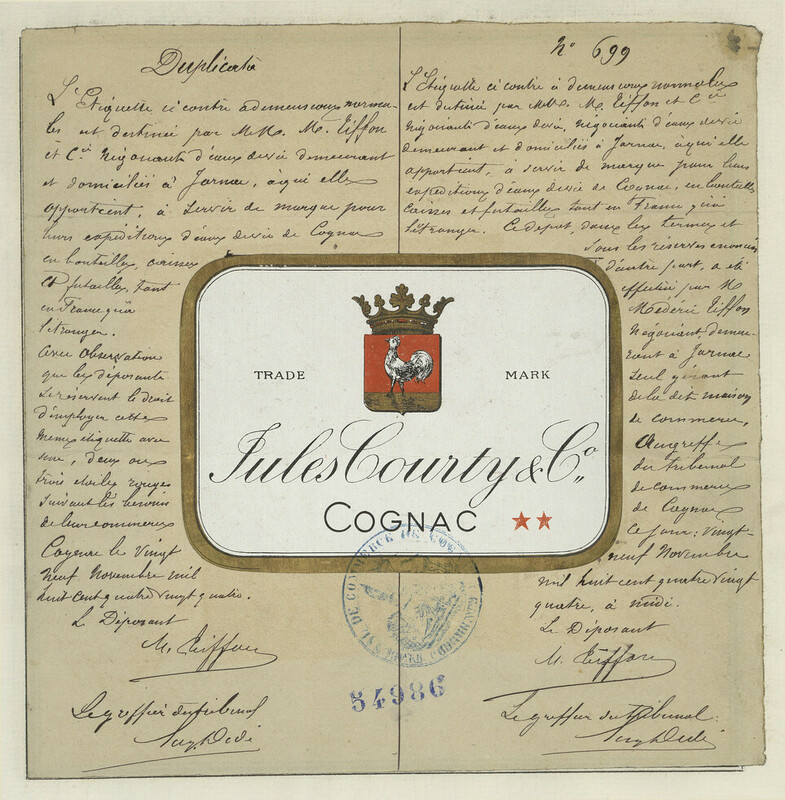 Duplicata
L'Etiquette ci contre a dimensions norma-
les est destinée par MM. M. Tiffon
et Cie Négociants d'eaux devie demeurant
et domiciliés à Jarnac, àqui elle
appartient, à servir de marque pour
leurs expéditions d'eaux devie de Cognac
en bouteilles, caisses
et futailles, tant
en France qu'à
l'étranger.
Avec Observation
que les déposants
se réservent le droit
d'employer cette
même étiquette avec
une, deux ou
trois étoiles rouges
suivant les besoins
de leur commerce
Cognac le vingt
neuf Novembre mil
huit cent quatre vingt quatre.
Le Déposant
M. Tiffon
Le greffier du tribunal
No 699
L'Etiquette ci contre à dimensions normales
est destinée par MM. M. Tiffon et Cie
Négociants d'eaux devie, négociants d'eaux devie
demeurant et domiciliés à Jarnac, àqui elle
appartient, à servir de marque pour leurs
expéditions d'eaux devie de Cognac, en bouteilles
caisses et futailles tant en France qu'à
l'étranger. Ce depot, dans les termes et
sous les réserves énoncées
d'autre part, a été
effectué par M
Médéric Tiffon
Négociant demeu-
rant à Jarnac
seul gérant
de la dite maison
de commerce,
Au greffe
du tribunal
de commerce
de Cognac
ce jour: vingt-
neuf Novembre
mil huit cent quatre vingt
quatre, à midi.
Le Déposant
M. Tiffon
Le greffier du Tribunal
TRADE MARK
Jules Courty & Co
COGNAC ★★
54986